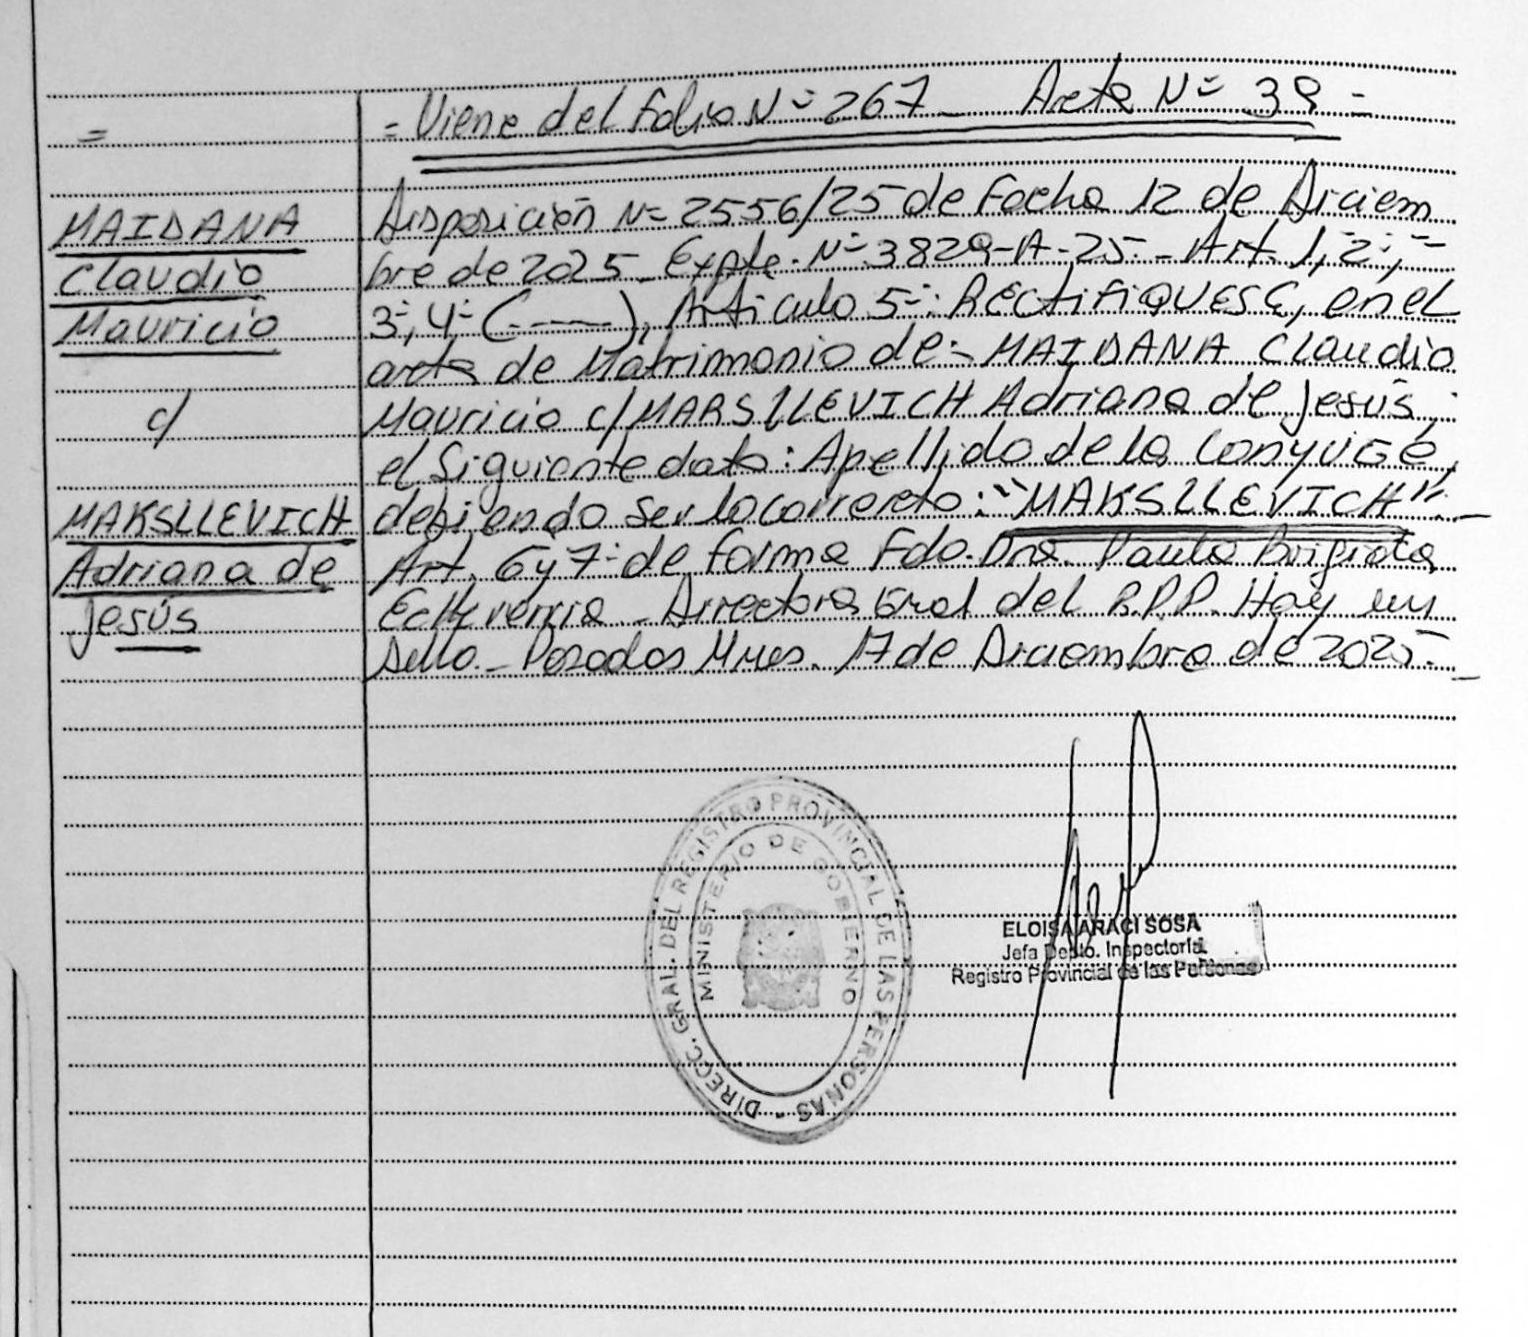 = Viene del folio N= 267 _ Acta N= 39 =
=
MAIDANA
Claudio
Mauricio
c/
MAKSLLEVICH
Adriana de
Jesús
Disposición N= 2556/25 de fecha 12 de Diciem
bre de 2025_ Expte. N= 3829-A-25.- Art. 1; 2;
3; 4 (.----), Articulo 5: RECTIFIQUESE, en el
acta de Matrimonio de: MAIDANA Claudio
Mauricio c/ MARSLLEVICH Adriana de Jesús;
el Siguiente dato: Apellido de la Conyuge,
debiendo ser lo correcto: "MAKSLLEVICH". _
Art. 6 y 7 de forma Fdo. Dra. Paula Brigida
Echeverria_ Directora Gral del R.P.P. Hay un
Sello._ Posadas Mnes. 17 de Diciembre de 2025._
DIRECC. GRAL. DEL REGISTRO PROVINCIAL DE LAS PERSONAS -
MINISTERIO DE GOBIERNO
ELOISA ARACI SOSA
Jefa Depto. Inspectoría
Registro Provincial de las Personas